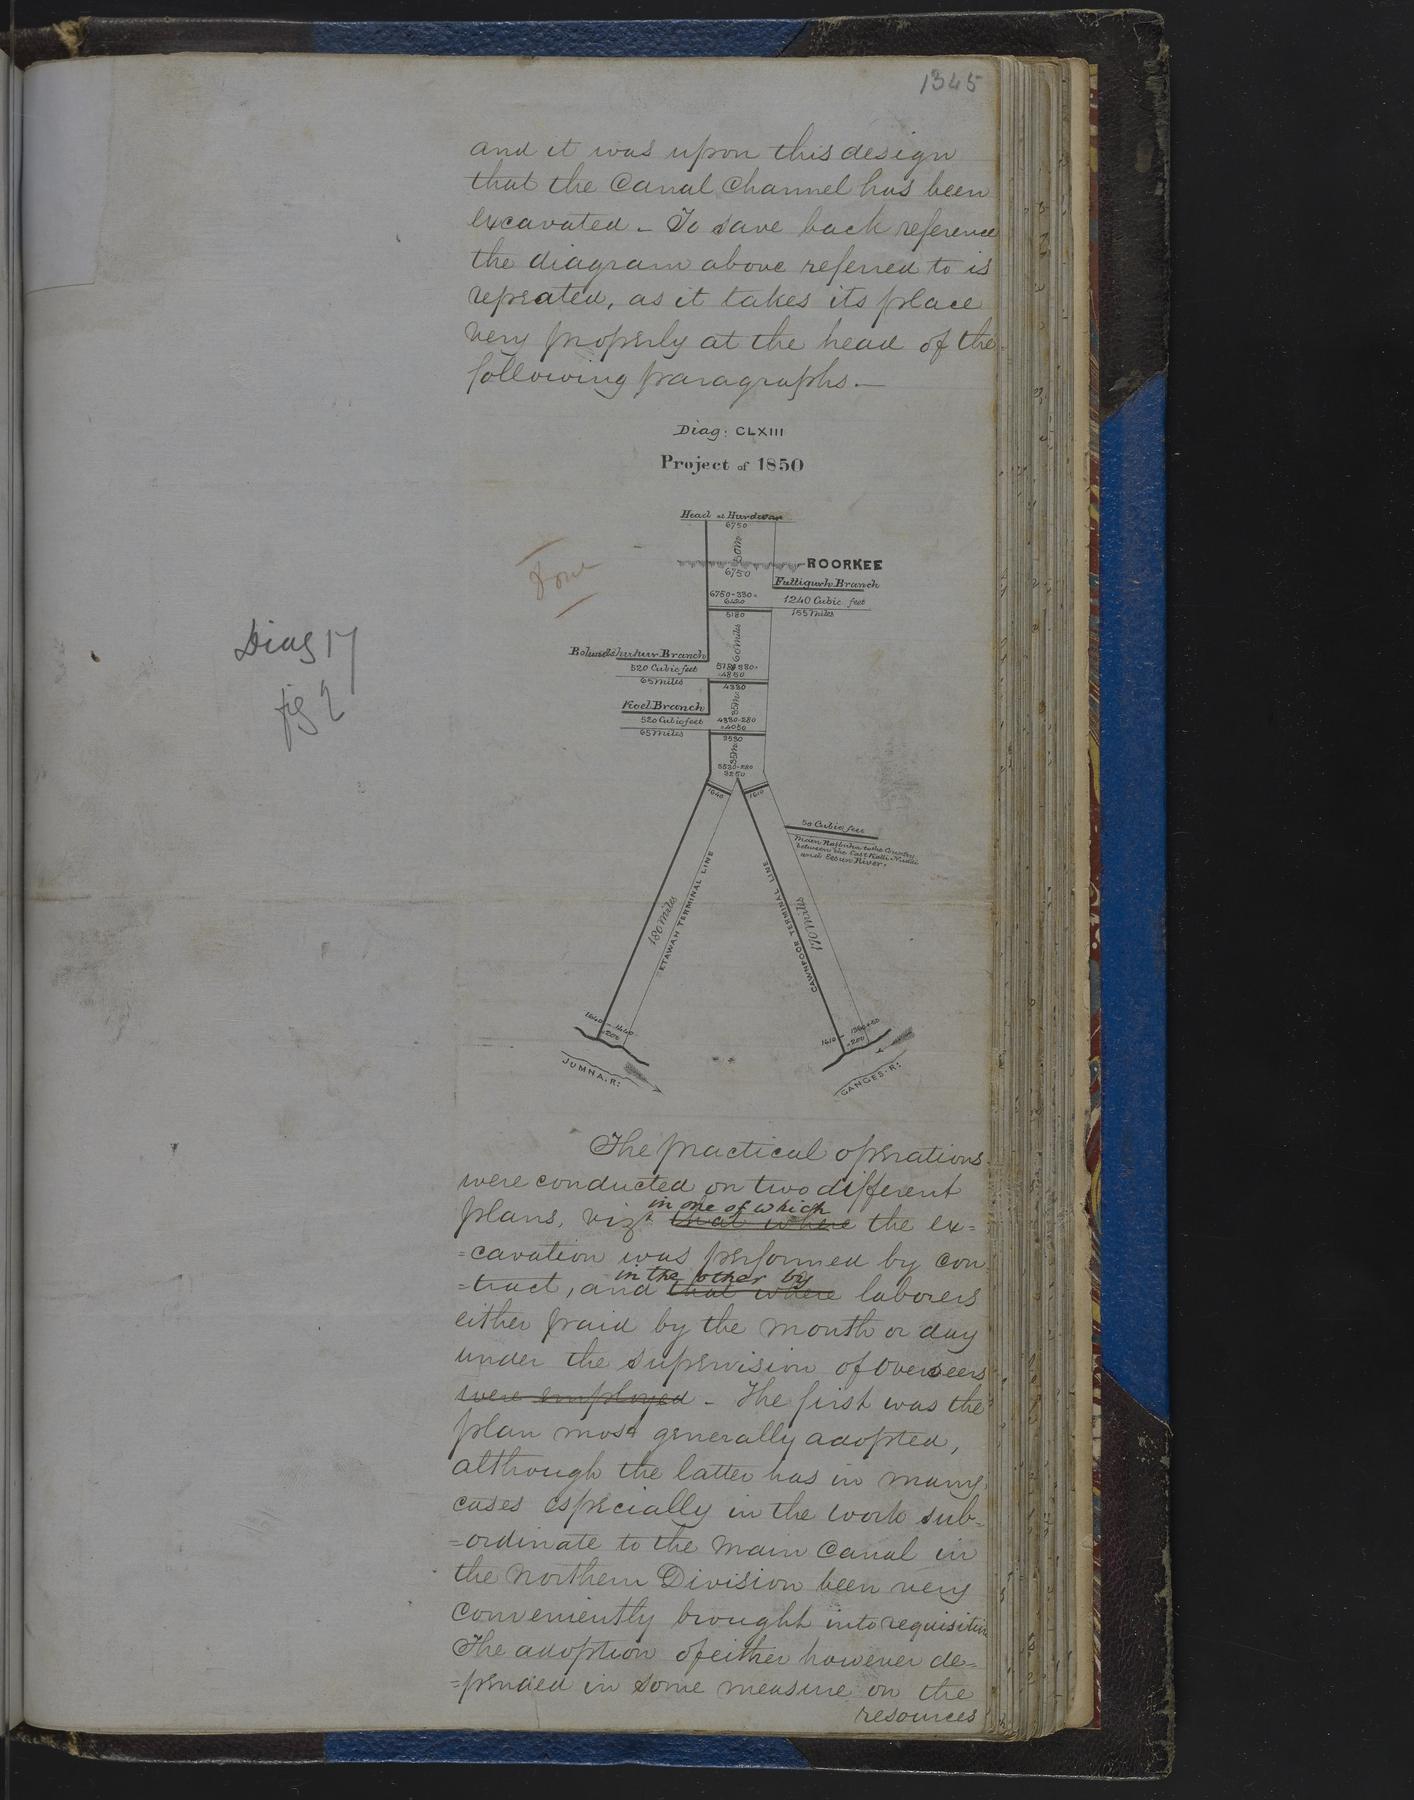 1345
and it was upon this design
that the Canal Channel has been
excavated - To save back reference
the diagram above referred to is
repeated, as it takes its place
very properly at the head of the
following paragraphs. —
Diag: CLXIII
Project of 1850
Head at Hurdwar
6750
50 m
ROORKEE
6750
Futtigurh Branch
6750-330=
6420
1240 Cubic feet
155 Miles
5180
60 miles
Bolundshuhur Branch
520 Cubic feet
65 Miles
=4850
4330
35 m
Koel Branch
520 Cubic feet
65 Miles
4330-280
=4050
3530
35 m
3530-280
3250
1640
1610
50 Cubic feet
Main Rajbuha to the Country
between the East Kalli Nuddi
and Eesun River.
180 Miles
ETAWAH TERMINAL LINE
CAWNPOOR TERMINAL LINE
170 miles
1640-1440
=200
1610-1360+50
=200
JUMNA.R:
GANGES.R:
Done
Diag 17
fig 2
The practical operations
were conducted on two different
in one of which
plans, vizt that where the ex=
=cavation was performed by con
in the other by
=tract, and that where laborers
either paid by the month or day
under the supervision of Overseers
were employed - The first was the
plan most generally adopted,
although the latter has in many
cases especially in the work sub=
=ordinate to the Main Canal in
the Northern Division been very
conveniently brought into requisition
The adoption of either however de=
=pended in some measure on the
resources